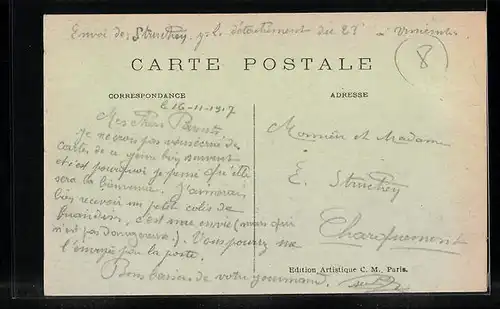 Envoi de Struchey, détachement du 23 à
8
CARTE POSTALE
CORRESPONDANCE
ADRESSE
le 16-11-1917
Mes chers Parents
Je ne crois pas
cartes de ce bien souvent
et c'est pourquoi je pense qu'elle
sera la bienvenue. J'aimerais
bien recevoir un petit colis de
c'est une envie (mais qui
n'est pas dangereuse.) Vous pourrez me
l'envoyer par la poste.
Bons baisers de votre gourmand.
Monsieur et Madame
E. Struchey
Charquemont
Edition Artistique C. M., Paris.